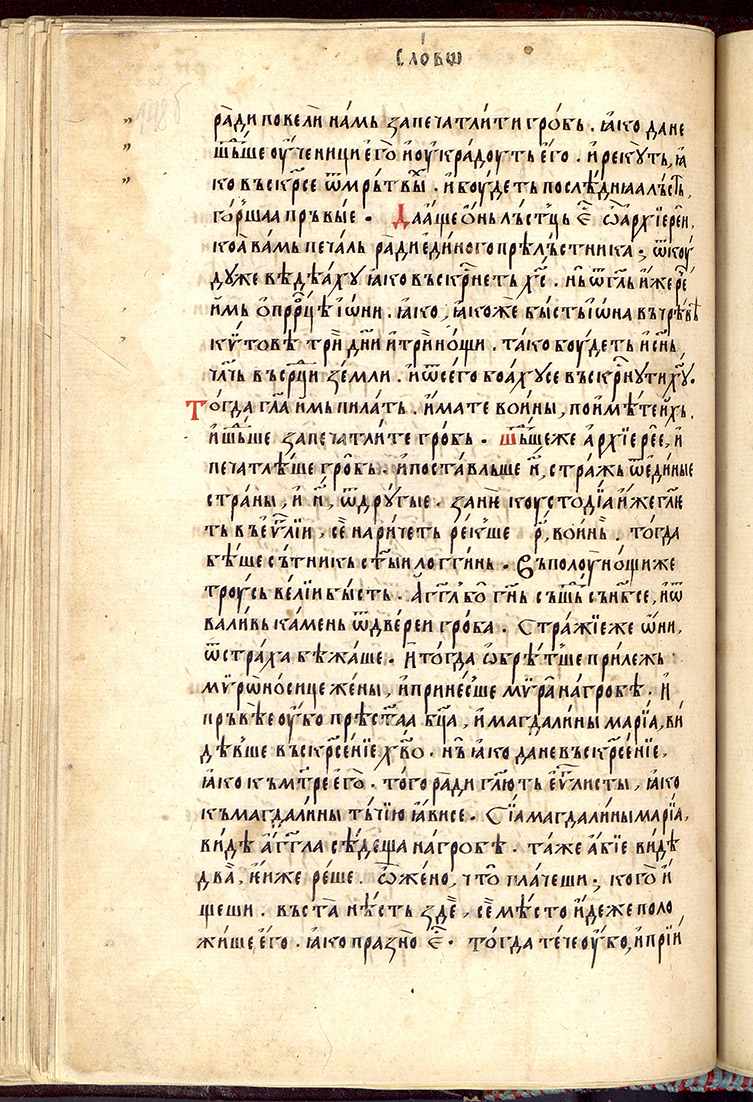 Сло́вѡ
ра́ди повелѝ на́мь запечатлѝти гро́бь . ꙗ҆ко дане
ше́дше оу҆ченици е҆го̀ и҆оукра́доуть є҆го . и҆рекꙋ́ть, ꙗ҆
ко въскр҃се ѿмрь́твы . и҆бꙋ́деть послѣ́днꙗа лъ́сть,
го́ршаа прь́вые . Даа҆ще ѻ҆́нь лъсте́ць є҆́с҃ ѽархїере́и,
ко́а ва́мь печа́ль ра́ди є҆ди́ного прѣлъ́стника ; ѿкоу́
дꙋже вѣ́дѣахꙋ ꙗ҆ко въскр҃снеть х҃с . нь̀ ѿгл҃ь и҆́же ре́че
и҆́мь ѻ҆прⷪ҇рцѣ і҆ѡ́ни . ꙗ҆ко, ꙗ҆коже бы́сть і҆ѡ́на въчрѣ́вѣ
кѵ́товѣ три̑ дн҃и и҆три̑ но́щи . та́ко боу́деть и҆сн҃ь
чл҃чь въср҃ци земли . и҆ѿсего̀ боа́хꙋсе въскр҃снꙋти х҃ꙋ .
Тогда гл҃а и҆̀мь пила́ть . и҆́мате во́ины, пои҆мѣ́теи҆хь .
и҆ше́дше запечатлѝте гро́бь . ше́дшеже а҆рхїере́е, и҆
печатлѣ́ше гро́бь . и҆поста́вльше н҃, стра́жь ѿе҆ди́ные
страны̀, и҆ н҃, ѿдрꙋ́гые . занѐ коустоді́а и҆́же гл҃ю
ть въе҆ѵⷢ҇лїи , сѐ нари́четь ре́кше р҃, во́инь . тогда
бѣ́ше съ́тникь ст҃ыи логги́нь . Въполоуно́щи же
троу́сь ве́лїи бы́сть . А҆гг҃ль бо̀ гн҃ь съше́дь сън҃бсе, и҆ѿ
вали́вь ка́мень ѿдве́реи гро́ба . Стра́жїеже ѻ҆ни,
ѿстра́ха бѣжа́ше . И҆тогда ѡ҆брѣ́тше прилежь
мѵ́рѡно́сице же́ны, и҆прине́сше мѵ́ра на гробѣ . И҆
прь́вѣе оу҆бо прѣст҃аа бц҃а, и҆магдали́ны марі́а, ви
дѣвше въскр҃се́нїе хв҃о . нь̀ ꙗ҆ко дане въскр҃се́нїе,
ꙗ҆ко къмт҃ре е҆го̀ . того̀ ра́ди гл҃ють е҆ѵⷢ҇листы, ꙗ҆ко
къмагдали́ны тъ́чїю ꙗ҆висе . Сїа магдали́ны марі́а,
ви́дѣ а҆гг҃ла сѣде́ща на гробѣ . та́же а҆бі́е ви́дѣ
два̀, и҆́иже ре́ше . ѽже́но, что̀ пла́чеши ; кого̀ и҆
щеши . въста̀ нѣ́сть здѐ, сѐ мѣ́сто и҆де́же поло
жи́ше е҆го . ꙗ҆ко пра́зно є҆́с҃ . тогда те́че оу҆бо, и҆прїи